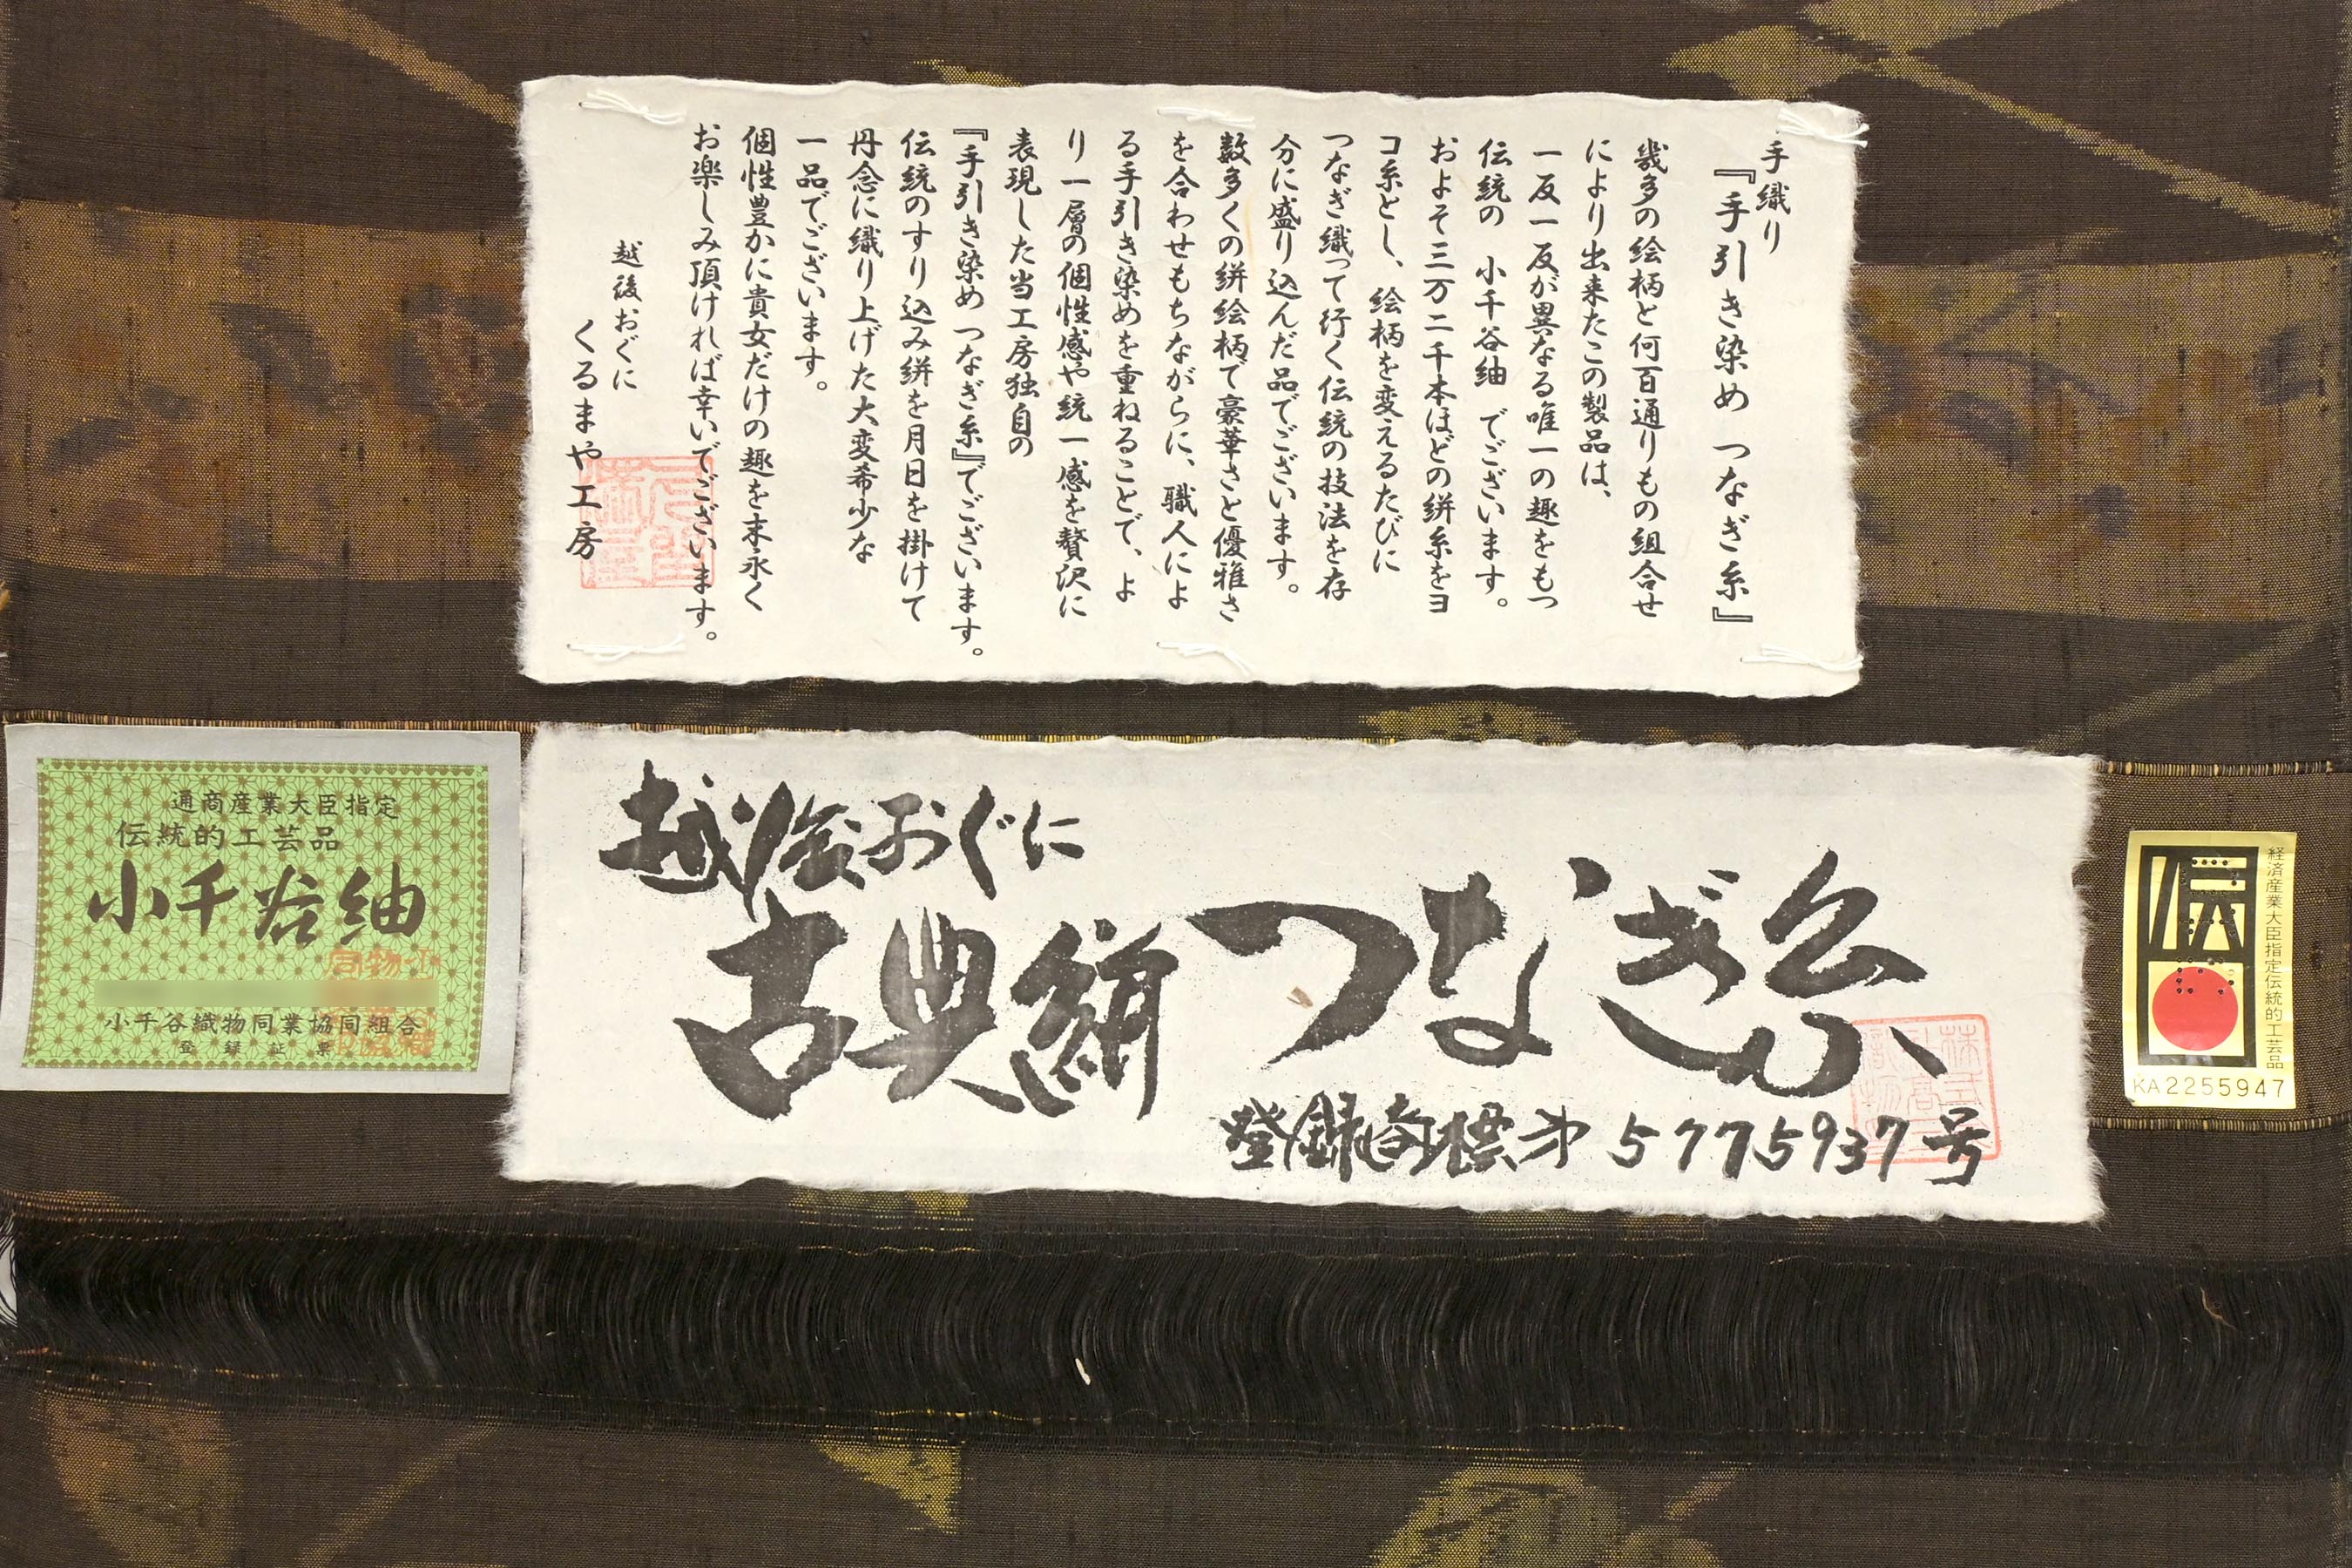 手織り
『手引き染め つなぎ糸』
幾多の絵柄と何百通りもの組合せ
により出来たこの製品は、
一反一反が異なる唯一の趣をもつ
伝統の 小千谷紬 でございます。
およそ三万二千本ほどの絣糸をヨ
コ糸とし、絵柄を変えるたびに
つなぎ織って行く伝統の技法を存
分に盛り込んだ品でございます。
数多くの絣絵柄で豪華さと優雅さ
を合わせもちながらに、職人によ
る手引き染めを重ねることで、よ
り一層の個性感や統一感を贅沢に
表現した当工房独自の
『手引き染め つなぎ糸』でございます。
伝統のすり込み絣を月日を掛けて
丹念に織り上げた大変希少な
一品でございます。
個性豊かに貴女だけの趣を末永く
お楽しみ頂ければ幸いでございます。
越後おぐに
くるまや工房
通商産業大臣指定
伝統的工芸品
小千谷紬
小千谷織物同業協同組合
登録証票
越後おぐに
古典絣つなぎ糸
登録商標第5775937号
伝
経済産業大臣指定伝統的工芸品
KA2255947